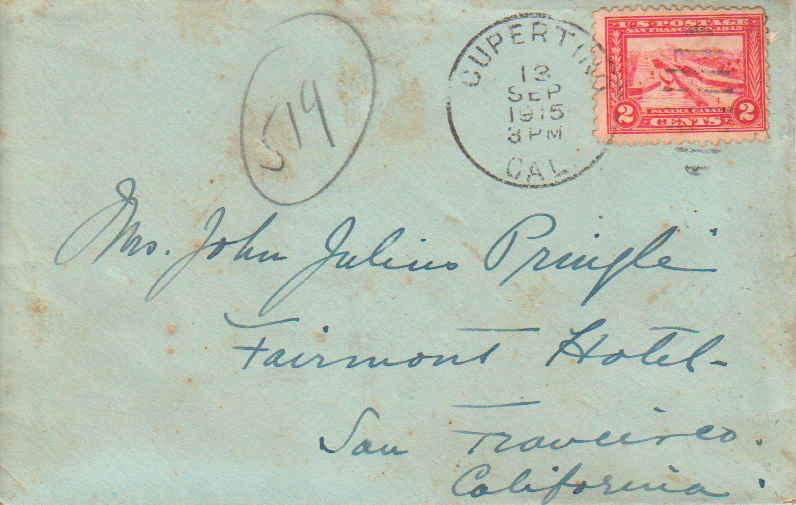 519
CUPERTINO
13
SEP
1915
3 PM
CAL.
U·S·POSTAGE
SAN FRANCISCO 1915
2 PANAMA CANAL 2
CENTS
Mrs. John Julius Pringle
Fairmont Hotel-
San Francisco.
California.